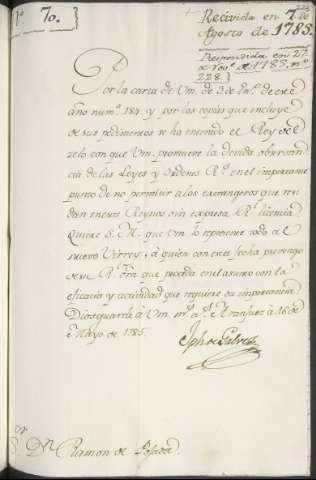 N.º 70.
Recivida en 7. de
Agosto de 1785.
Respondida en 27
de Nov.e de 1785. n.º
228.
Por la carta de Vm. de 3 de En.º de este
año num.º 184. y por las copias que incluye
de sus pedimentos se ha enterado el Rey del
zelo con que Vm. promueve la devida observan
cia de las Leyes y ordenes R.s en el importante
punto de no permitir a los extrangeros que resi
dan en esos Reynos sin expresa R.l licencia.
Quiere S. M. que Vm. lo represente todo al
nuevo Virrey, á quien con esta fecha prevengo
de su R.l orn que proceda en el asunto con la
eficacia y actividad que requiere su importancia
Dios guarde á Vm. m.s a.s Aranjuez á 16 de
Mayo de 1785.
Jph de Galvez
S.or D.n Ramon de Posada.